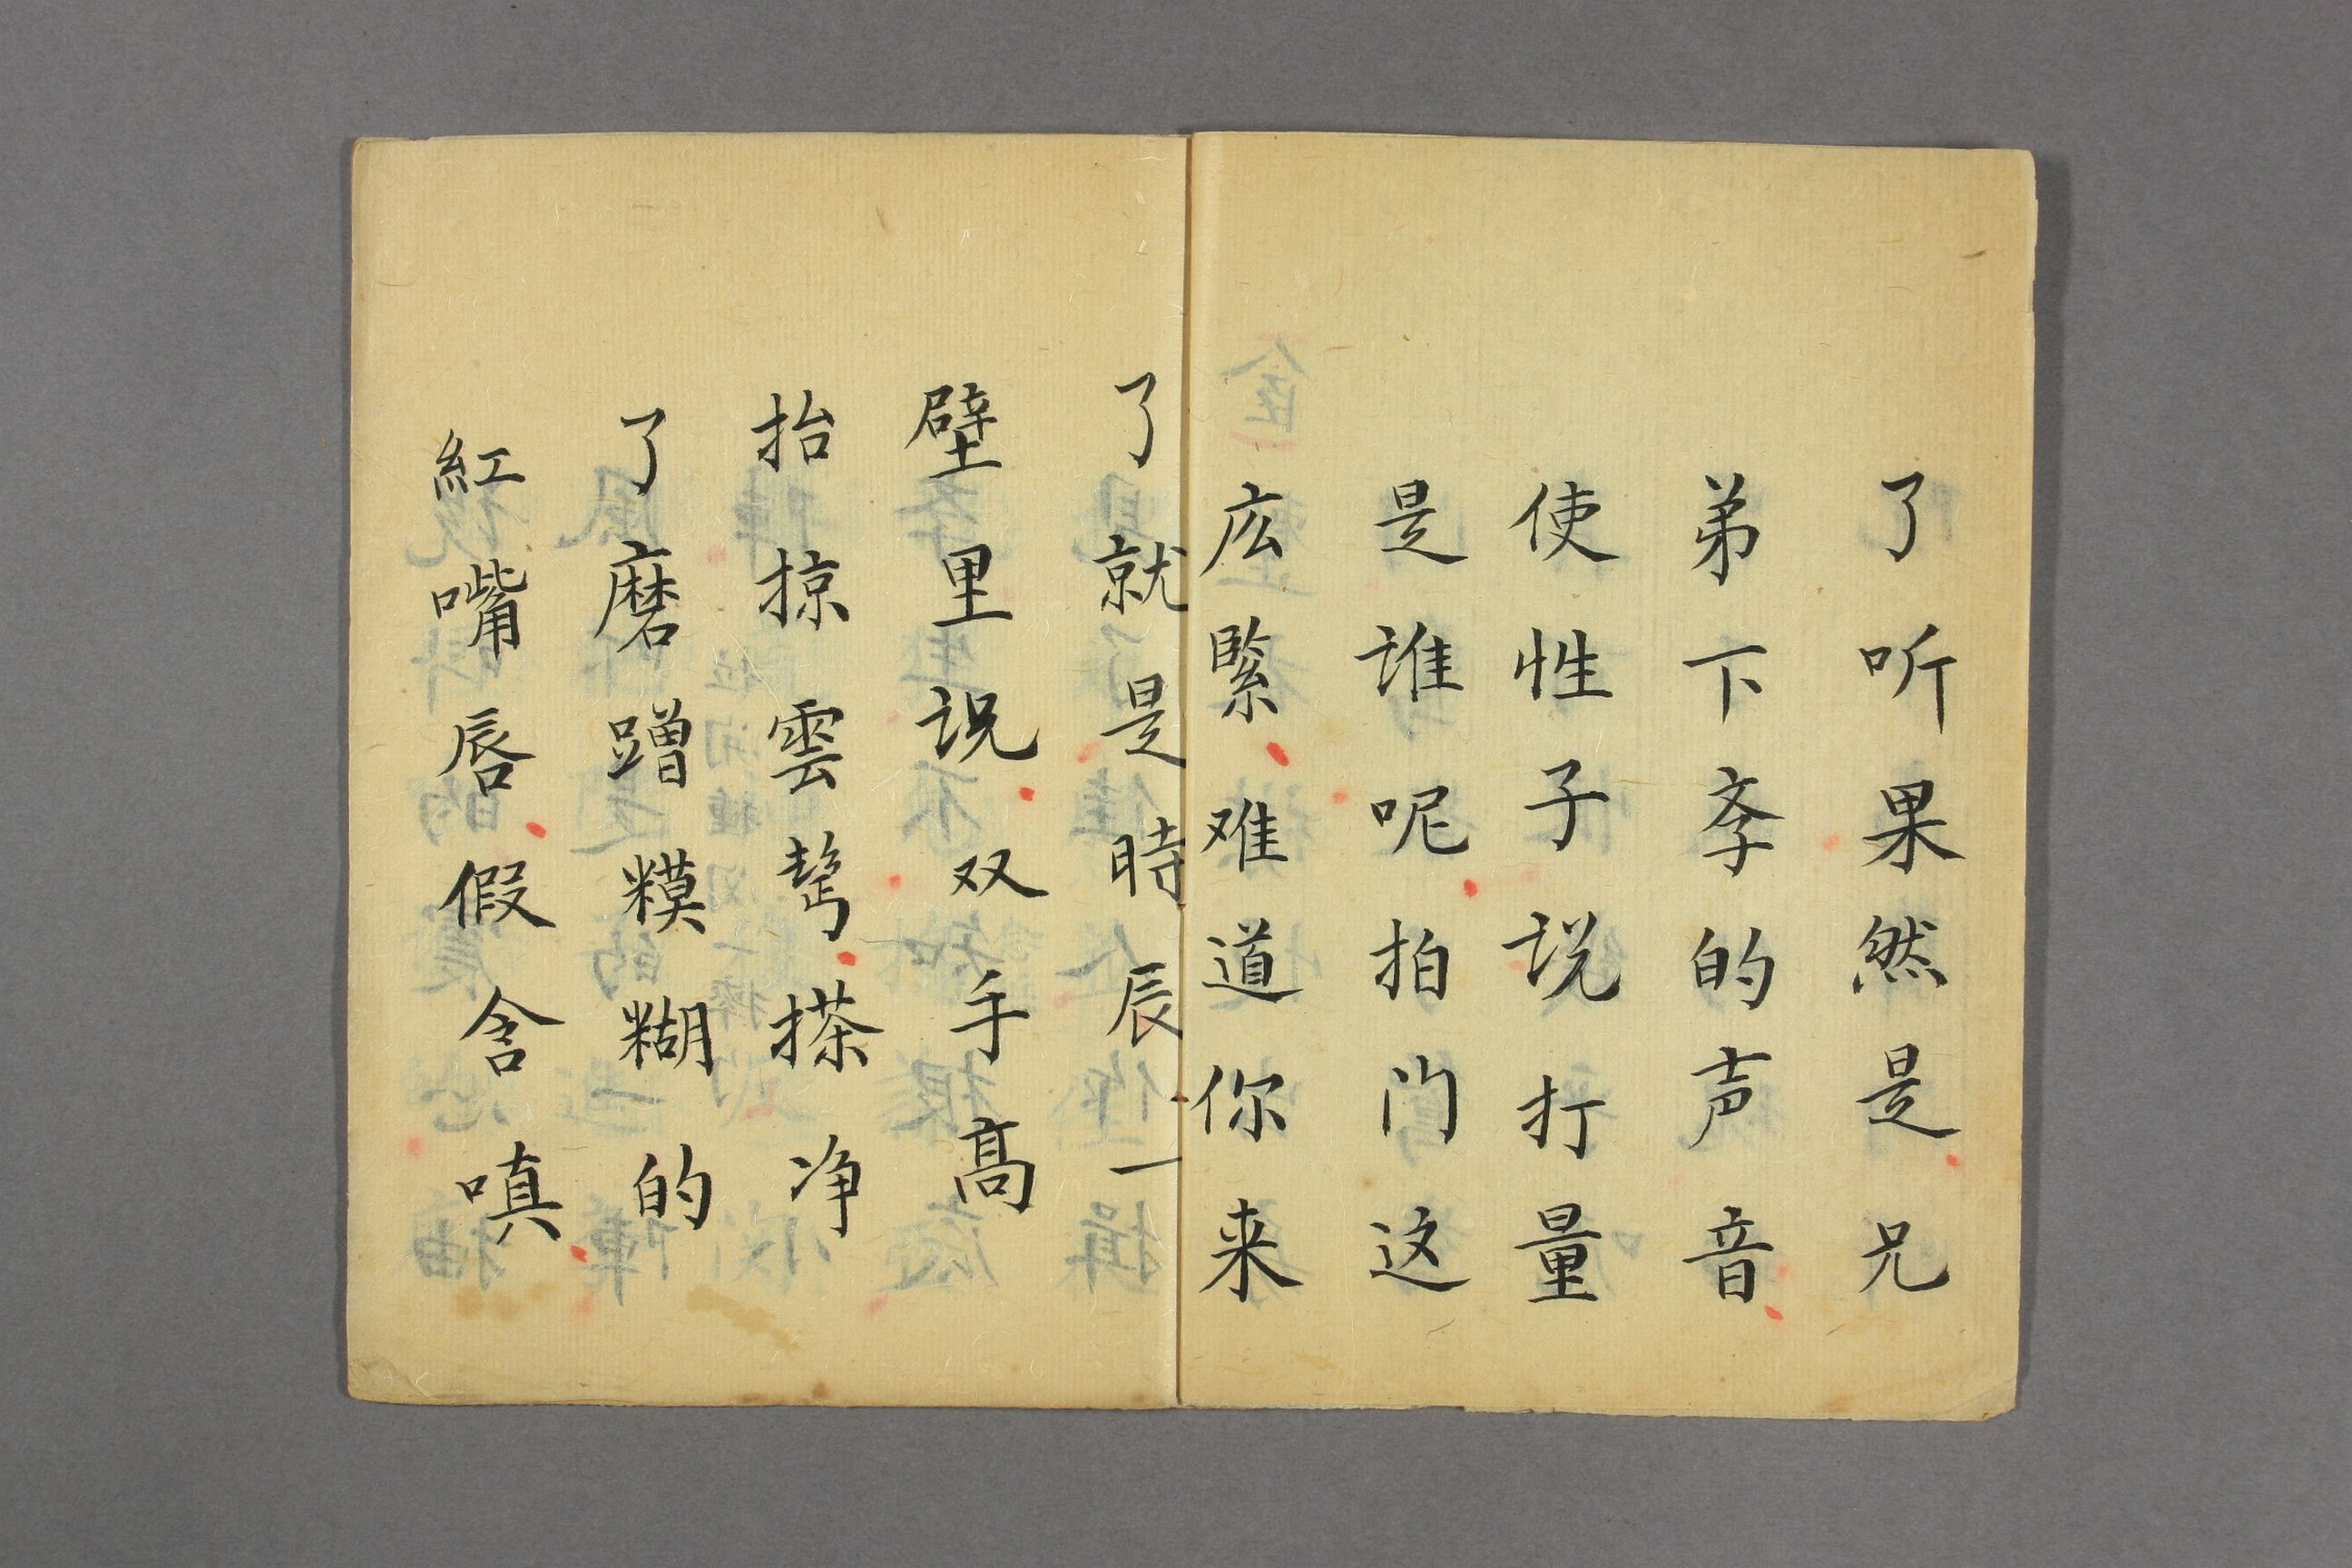 了听果然是兄
弟下孝的声音
使性子说打量
是谁呢拍门这
庅緊难道你来
了就是時辰一
壁里说双手高
抬掠雲髩搽净
了磨蹭糢糊的
紅嘴唇假含嗔